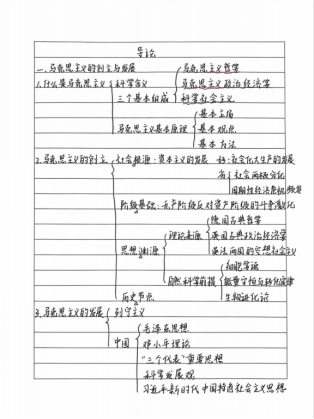 导论
一.马克思主义的创立与发展
马克思主义哲学
1.什么是马克思主义 科学含义 马克思主义政治经济学
三个基本组成 科学社会主义
基本立场
马克思主义基本原理 基本观点
基本方法
2.马克思主义的创立 社会根源:资本主义的发展 社会化大生产的发展
社会两极分化
周期性经济危机
阶级基础:无产阶级反对资产阶级的斗争激化
德国古典哲学
理论来源 英国古典政治经济学
思想渊源 英法两国的空想社会主义
细胞学说
自然科学前提 能量守恒与转化定律
历史节点 生物进化论
3.马克思主义的发展 列宁主义
毛泽东思想
中国 邓小平理论
“三个代表”重要思想
科学发展观
习近平新时代中国特色社会主义思想